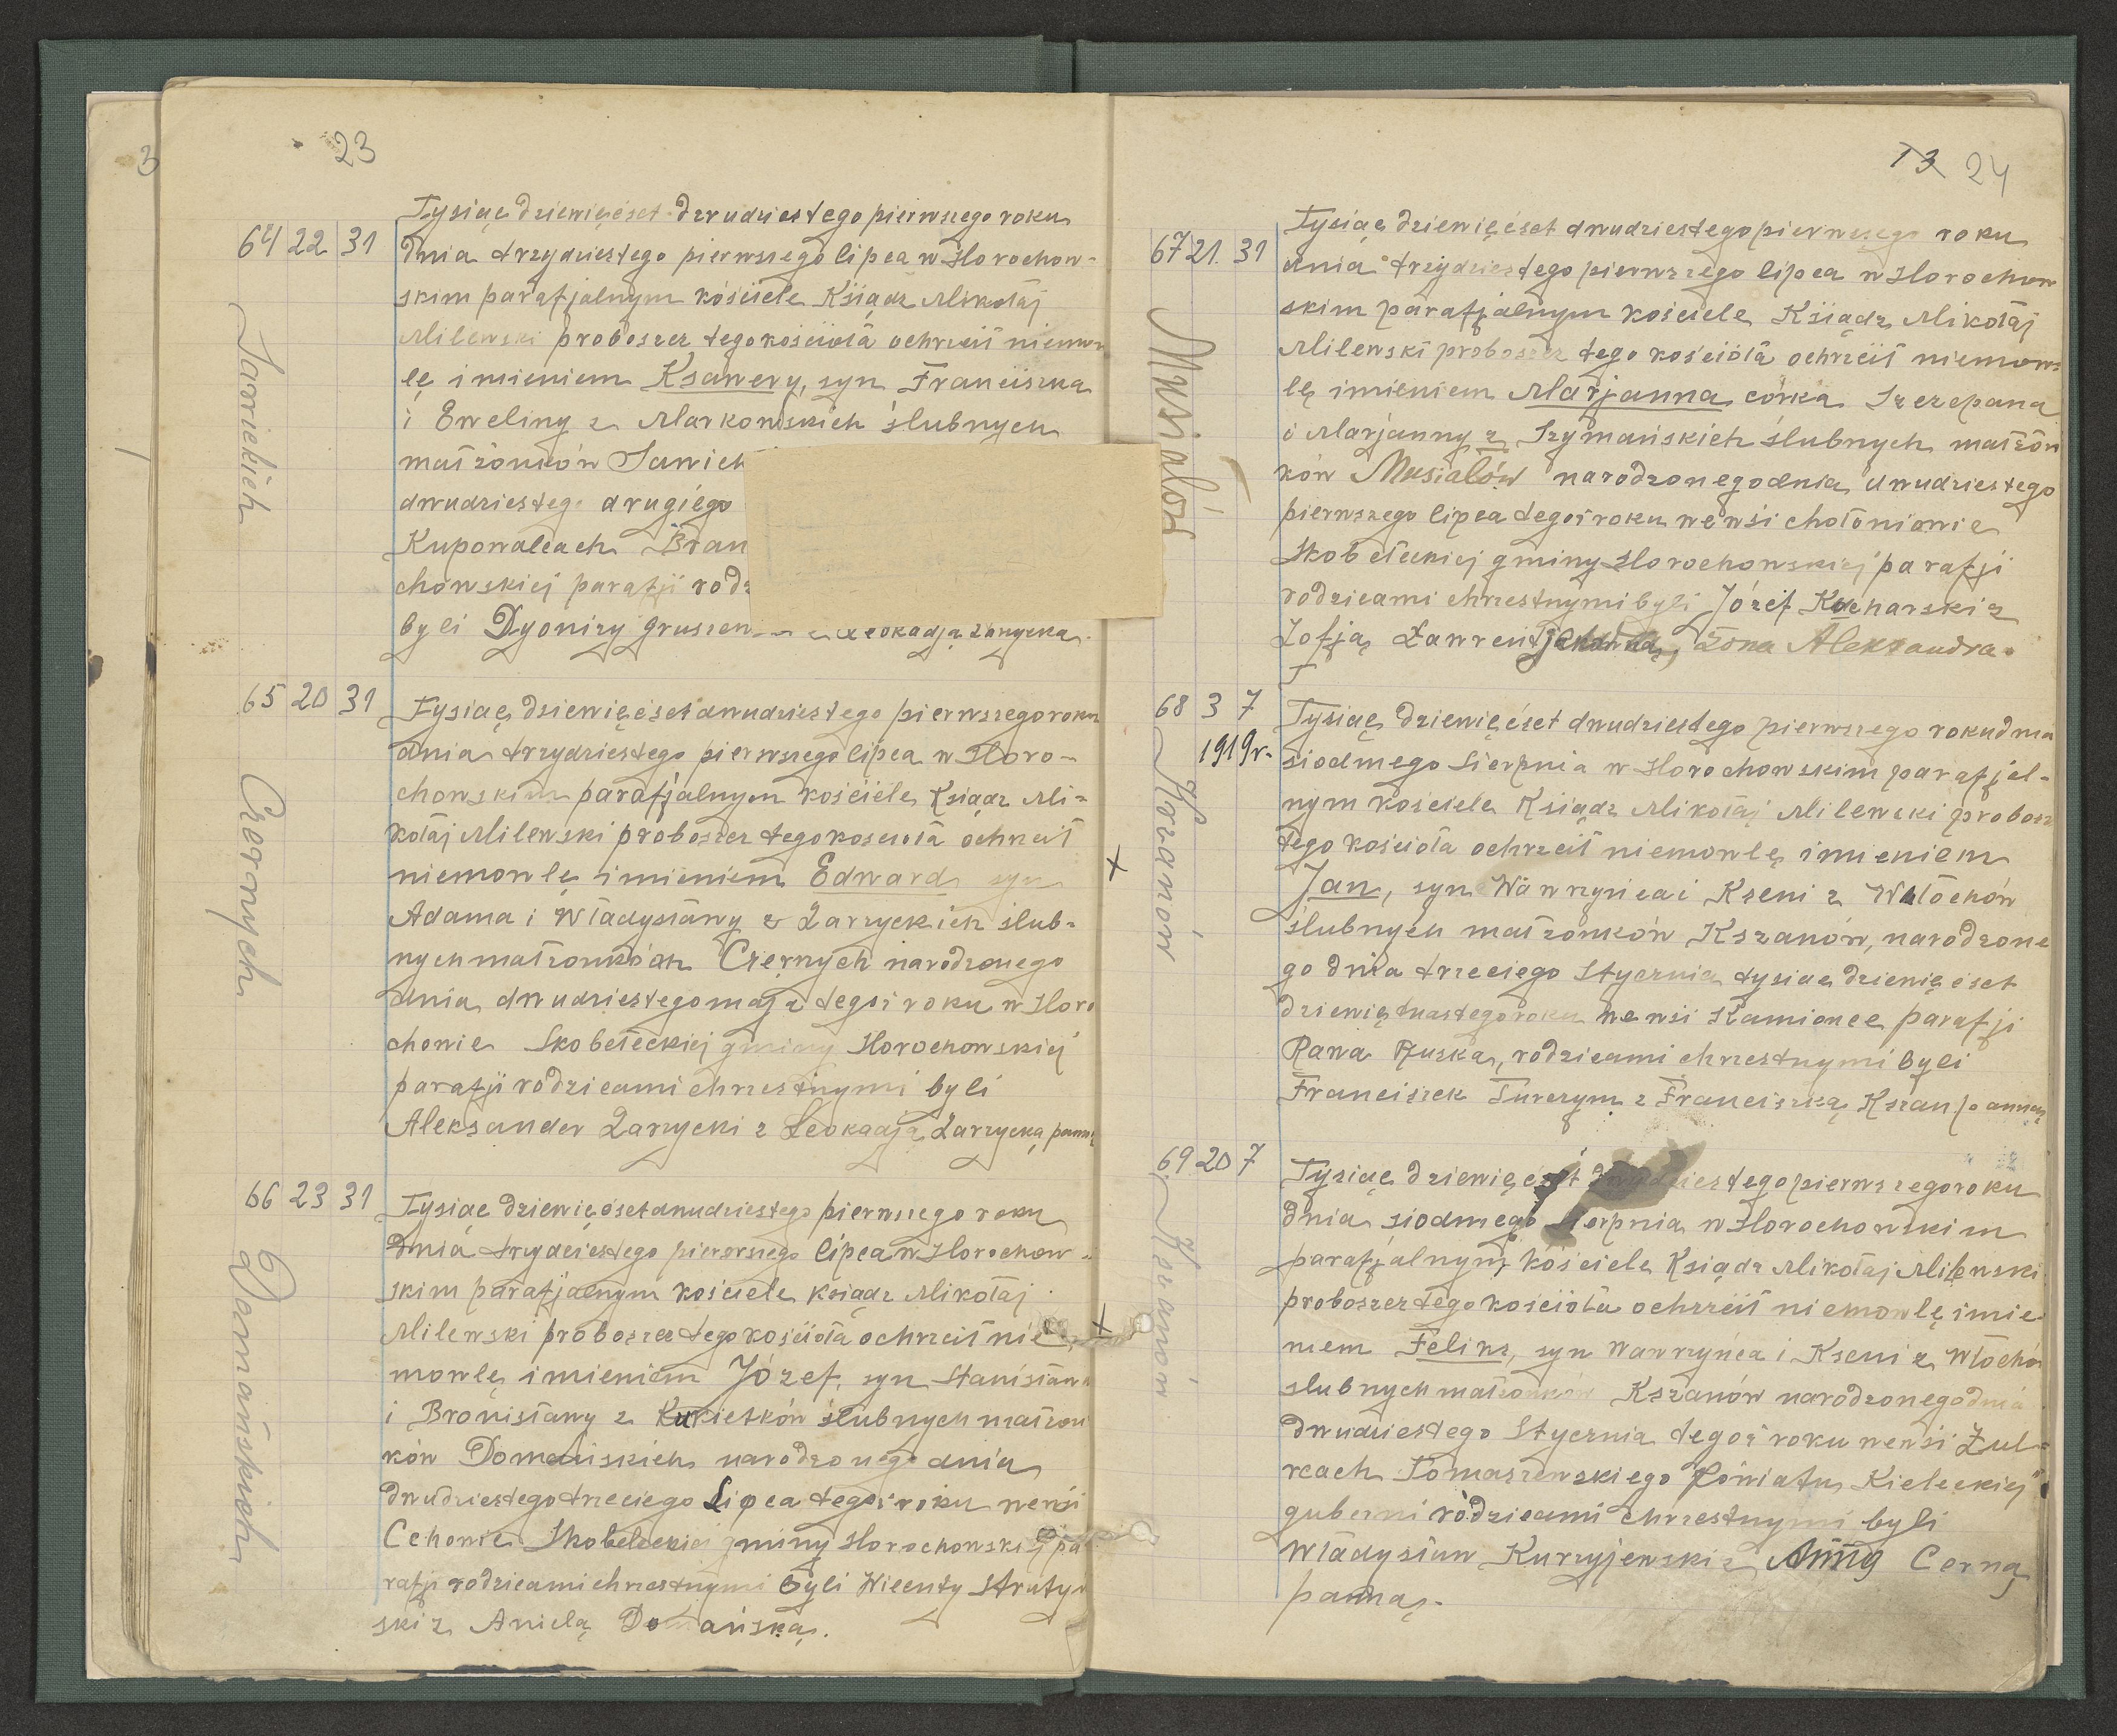 23
Tysiąc dziewięćset dwudziestego pierwszego roku
64 22 31 dnia trzydziestego pierwszego lipca w Horochow-
skim parafjalnym kościele Ksiądz Mikołaj
Milewski proboszcz tego kościoła ochrzcił niemow
lę imieniem Ksawery, syn Franciszka
i Eweliny z Markowskich ślubnych
małżonków Sawick
dwudziestego drugiego
Kupowalcach Bran
chowskiej parafji rodz
byli Dyonizy Gruszew z Leokadją Zarzycką.
Sawickich
65 20 31 Tysiąc dziewięćset dwudziestego pierwszego roku
dnia trzydziestego pierwszego lipca w Horo-
chowskim parafjalnym kościele Ksiądz Mi-
kołaj Milewski proboszcz tego kościoła ochrzcił
niemowlę imieniem Edward syn
Adama i Władysławy z Zarzyckich ślub-
nych małżonków Czernych narodzonego
dnia dwudziestego maja tegoż roku w Horo
chowie Skobełeckiej gminy Horochowskiej
parafji rodzicami chrzestnymi byli
Aleksander Zarzycki z Leokadją Zarzycką panną
Czernych
66 23 31 Tysiąc dziewięćset dwudziestego pierwszego roku
dnia trzydziestego pierwszego lipca w Horochow-
skim parafjalnym kościele Ksiądz Mikołaj
Milewski proboszcz tego kościoła ochrzcił nie
mowlę imieniem Józef, syn Stanisława
i Bronisławy z Kukiełków ślubnych małżon
ków Domańskich narodzonego dnia
dwudziestego trzeciego Lipca tegoż roku we wsi
Cehowie Skobełeckiej gminy Horochowskiej pa
rafji rodzicami chrzestnymi byli Wicenty Strutyń
ski z Anielą Domańską.
Domańskich
13 24
Tysiąc dziewięćset dwudziestego pierwszego roku
67 21 31 dnia trzydziestego pierwszego lipca w Horochow
skim parafjalnym kościele Ksiądz Mikołaj
Milewski proboszcz tego kościoła ochrzcił niemow-
lę imieniem Marjanna córka Szczepana
i Marjanny z Szymańskich ślubnych małżon
ków Musiałów narodzonego dnia dwudziestego
pierwszego lipca tegoż roku we wsi Chołoniowie
Skobełeckiej gminy Horochowskiej parafji
rodzicami chrzestnymi byli Józef Kucharski z
Zofją Ławrentjewną, żona Aleksandra.
Musiałów
68 3 7 Tysiąc dziewięćset dwudziestego pierwszego roku dnia
1919r. siodmego Sierpnia w Horochowskim parafjal-
nym kościele Ksiądz Mikołaj Milewski probosz
tego kościoła ochrzcił niemowlę imieniem
Jan, syn Wawrzyńca i Kseni z Włochów
ślubnych małżonków Kszanów, narodzone
go dnia trzeciego Stycznia tysiąc dziewięćset
dziewiętnastego roku we wsi Kamionce parafji
Rawa Ruska, rodzicami chrzestnymi byli
Franciszek Turczyn z Franciszką Kszan panną
Kszanów
69 20 7 Tysiąc dziewięćset dwudziestego pierwszego roku
dnia siodmego Sierpnia w Horochowskim
parafjalnym kościele Ksiądz Mikołaj Milewski
proboszcz tego kościoła ochrzcił niemowlę imie
niem Feliks, syn Wawrzyńca i Kseni z Włochów
ślubnych małżonków Kszanów narodzonego dnia
dwudziestego Stycznia tegoż roku we wsi Żul-
Tomaszewskiego Powiatu Kieleckiej
guberni rodzicami chrzestnymi byli
Władysław Kurzyjewski z Anną Cerną
panną.
Kszanów